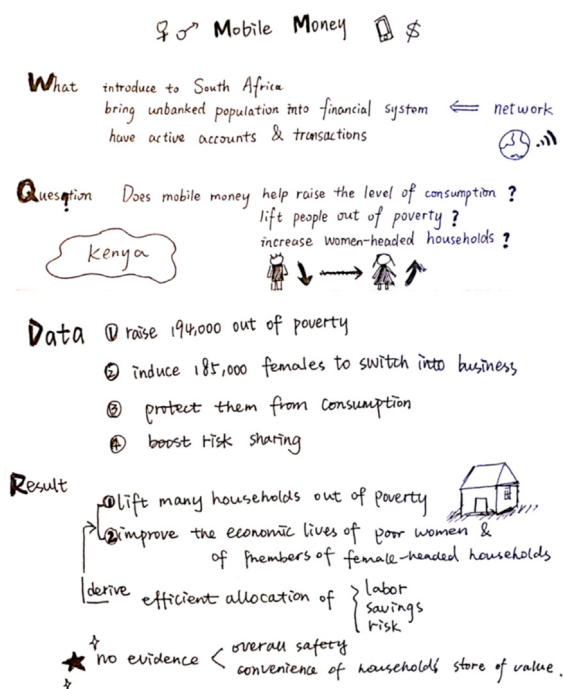 Mobile Money $
What introduce to South Africa
bring unbanked population into financial system ⇐ network
have active accounts & transactions
Quesqtion Does mobile money help raise the level of consumption ?
lift people out of poverty ?
increase women-headed households ?
Kenya
Data ① raise 194,000 out of poverty
② induce 185,000 females to switch into business
③ protect them from consumption
④ boost risk sharing
Result
① lift many households out of poverty
② improve the economic lives of poor women &
of members of female-headed households
derive efficient allocation of
labor
savings
risk
no evidence <
overall safety
convenience of households' store of value.